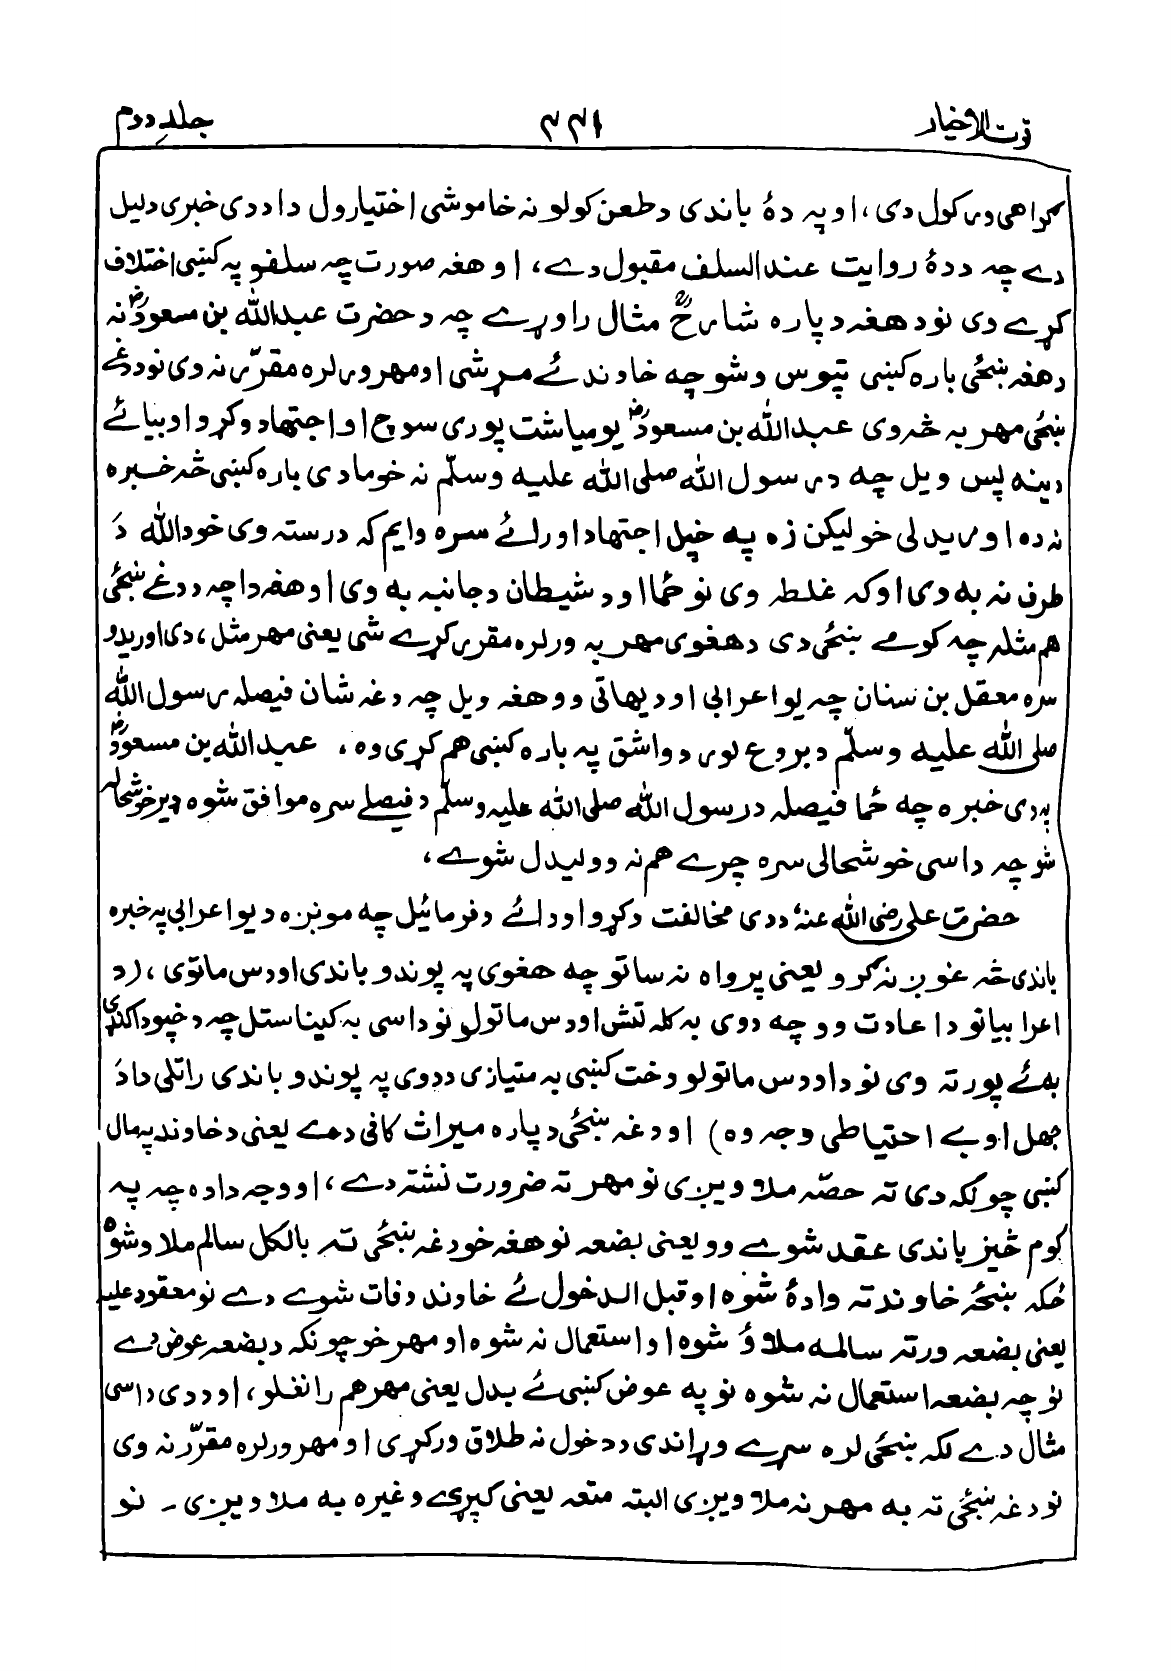 قوت الاخیار ۳۳۱ جلدِ دوم
گواهی ورکول دی، او په دۀ باندی د طعن کولو نه خاموشی اختیارول دا ددی خبری دلیل
دے چہ ددۀ روایت عند السلف مقبول دے، او هغه صورت چہ سلفو په کښی اختلاف
کړے دی نو د هغه دپاره شارحؒ مثال راوړے چہ د حضرت عبدالله بن مسعودؓ نہ
د هغه ښځی باره کښی تپوس وشو چه خاوند ئے مرشی او مهر ورلره مقرّر نه وی نو دغے
ښځی مهر به څه وی عبدالله بن مسعودؓ یو میاشت پوری سوچ او اجتهاد وکړو او بیائے
دینه پس ویل چه د رسول الله صلی الله علیه وسلّم نه خو ما دی باره کښی څه خبره
نه ده اوریدلی خو لیکن زه په خپل اجتهاد او رائے سره وایم که درسته وی خو د الله دَ
طرف نه به وی او که غلطه وی نو ځما او د شیطان د جانبه به وی او هغه دا چه د دغے ښځی
هم مثله چه کومے ښځی دی د هغوی مهر به ورلره مقرر کړے شی یعنی مهر مثل، دی اوریدو
سره معقل بن سنان چه یو اعرابی او دیهاتی وو هغه ویل چه دغه شان فیصله رسول الله
صلی الله علیه وسلّم د بروع لور د واشق په باره کښی هم کړی وه، عبدالله بن مسعودؓ
په دی خبره چه ځما فیصله د رسول الله صلی الله علیه وسلّم د فیصلے سره موافق شوه ډیر خوشحاله
شو چه داسی خوشحالی سره چرے هم نه وو لیدل شوے،
حضرت علی رضی الله عنهٗ ددی مخالفت وکړو او دائے وفرمائیل چه مونږه د یو اعرابی په خبره
باندی څه غوږ نه ګرو یعنی پرواه نه ساتو چه هغوی په پوندو باندی اودس ماتوی، (د
اعرابیانو دا عادت وو چه دوی به کله تش اودس ماتولو نو داسی به کیناستل چه د خپو دا کندی
به ئے پورته وی نو د اودس ماتولو وخت کښی به متیازی ددوی په پوندو باندی راتلی دا دَ
جهل او بے احتیاطی وجه وه) او دغه ښځی دپاره میراث کافی دے یعنی د خاوند په مال
کښی چونکه دی ته حصّه ملاویږی نو مهر ته ضرورت نشته دے، او وجه دا ده چه په
کوم څیز باندی عقد شوے وو یعنی بضعه نو هغه خو دغه ښځی ته بالکل سالم ملاو شوه
ځکه ښځه خاوند ته وادۀ شوه او قبل الدخول ئے خاوند وفات شوے دے نو معقود علیه
یعنی بضعه ورته سالمه ملاوٗ شوه او استعمال نه شوه او مهر خو چونکه د بضعه عوض دے
نو چه بضعه استعمال نه شوه نو په عوض کښی ئے بدل یعنی مهر هم رانغلو، او ددی داسی
مثال دے لکه ښځی لره سړے وړاندی د دخول نه طلاق ورکړی او مهر ورلره مقرّر نه وی
نو دغه ښځی ته به مهر نه ملاویږی البته متعه یعنی کپړے وغیره به ملاویږی ۔ نو